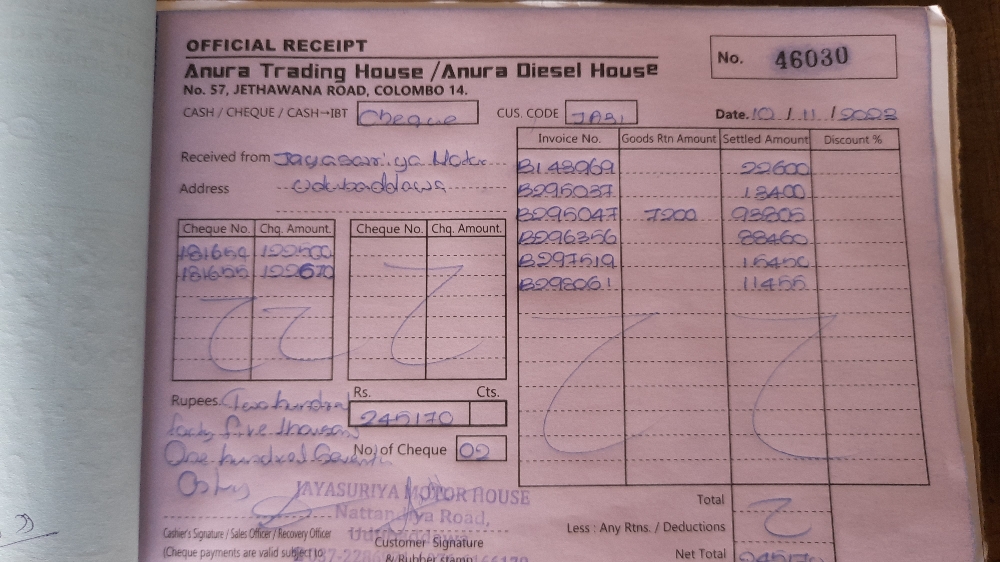 OFFICIAL RECEIPT
No. 46030
Anura Trading House / Anura Diesel House
No. 57, JETHAWANA ROAD, COLOMBO 14.
CASH / CHEQUE / CASH→IBT Cheque CUS. CODE JAB1 Date. 10 / 11 / 2023
Invoice No. Goods Rtn Amount Settled Amount Discount %
Received from Jayasooriya Motor
B143969 22600
Address
B295037 13400
B295047 7200 93805
Cheque No. Chq. Amount. Cheque No. Chq. Amount.
B296356 88460
181654 122500
B297519 15450
181655 122670
B298061 11455
Rs. Cts.
Rupees. Two hundred
245170
forty five thousand
No. of Cheque 02
One hundred Seventy
Only
JAYASURIYA MOTOR HOUSE
Total
Road,
Less : Any Rtns. / Deductions
Cashier's Signature / Sales Officer / Recovery Officer
Customer Signature
(Cheque payments are valid subject to
& Rubber stamp
Net Total 245170